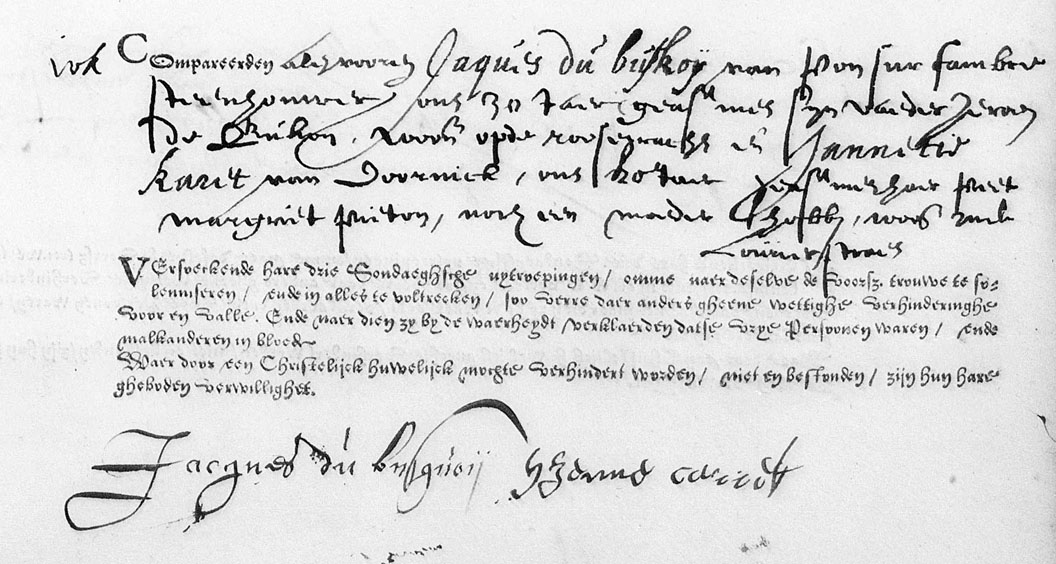 Compareerden als vooren Jaques du buskoÿ van Pon sur sambre
steenhouwer out 30 Jaer geass met sijn vader Jeroen
de, woon op de rosegracht en Jannetie
karet van Doornick, out 20 Jaer geass met haer
margriet, noch een moeder, woo
Versoeckende hare drie Sondaeghsche uytroepingen / omme naer deselve de voorsz. trouwe te so-
lemniseren / ende in alles te voltrecken / soo verre daer anders gheene wettighe verhinderinghe
voor en valle. Ende naer dien zy by de waerheydt / verklaerden datse vrye Persoonen waren / ende
malkanderen in bloed
Waer door een Christelijck huwelijck mochte verhindert worden / niet en bestonden / zijn hun hare
gheboden verwillighet.
Jacques du busquoij